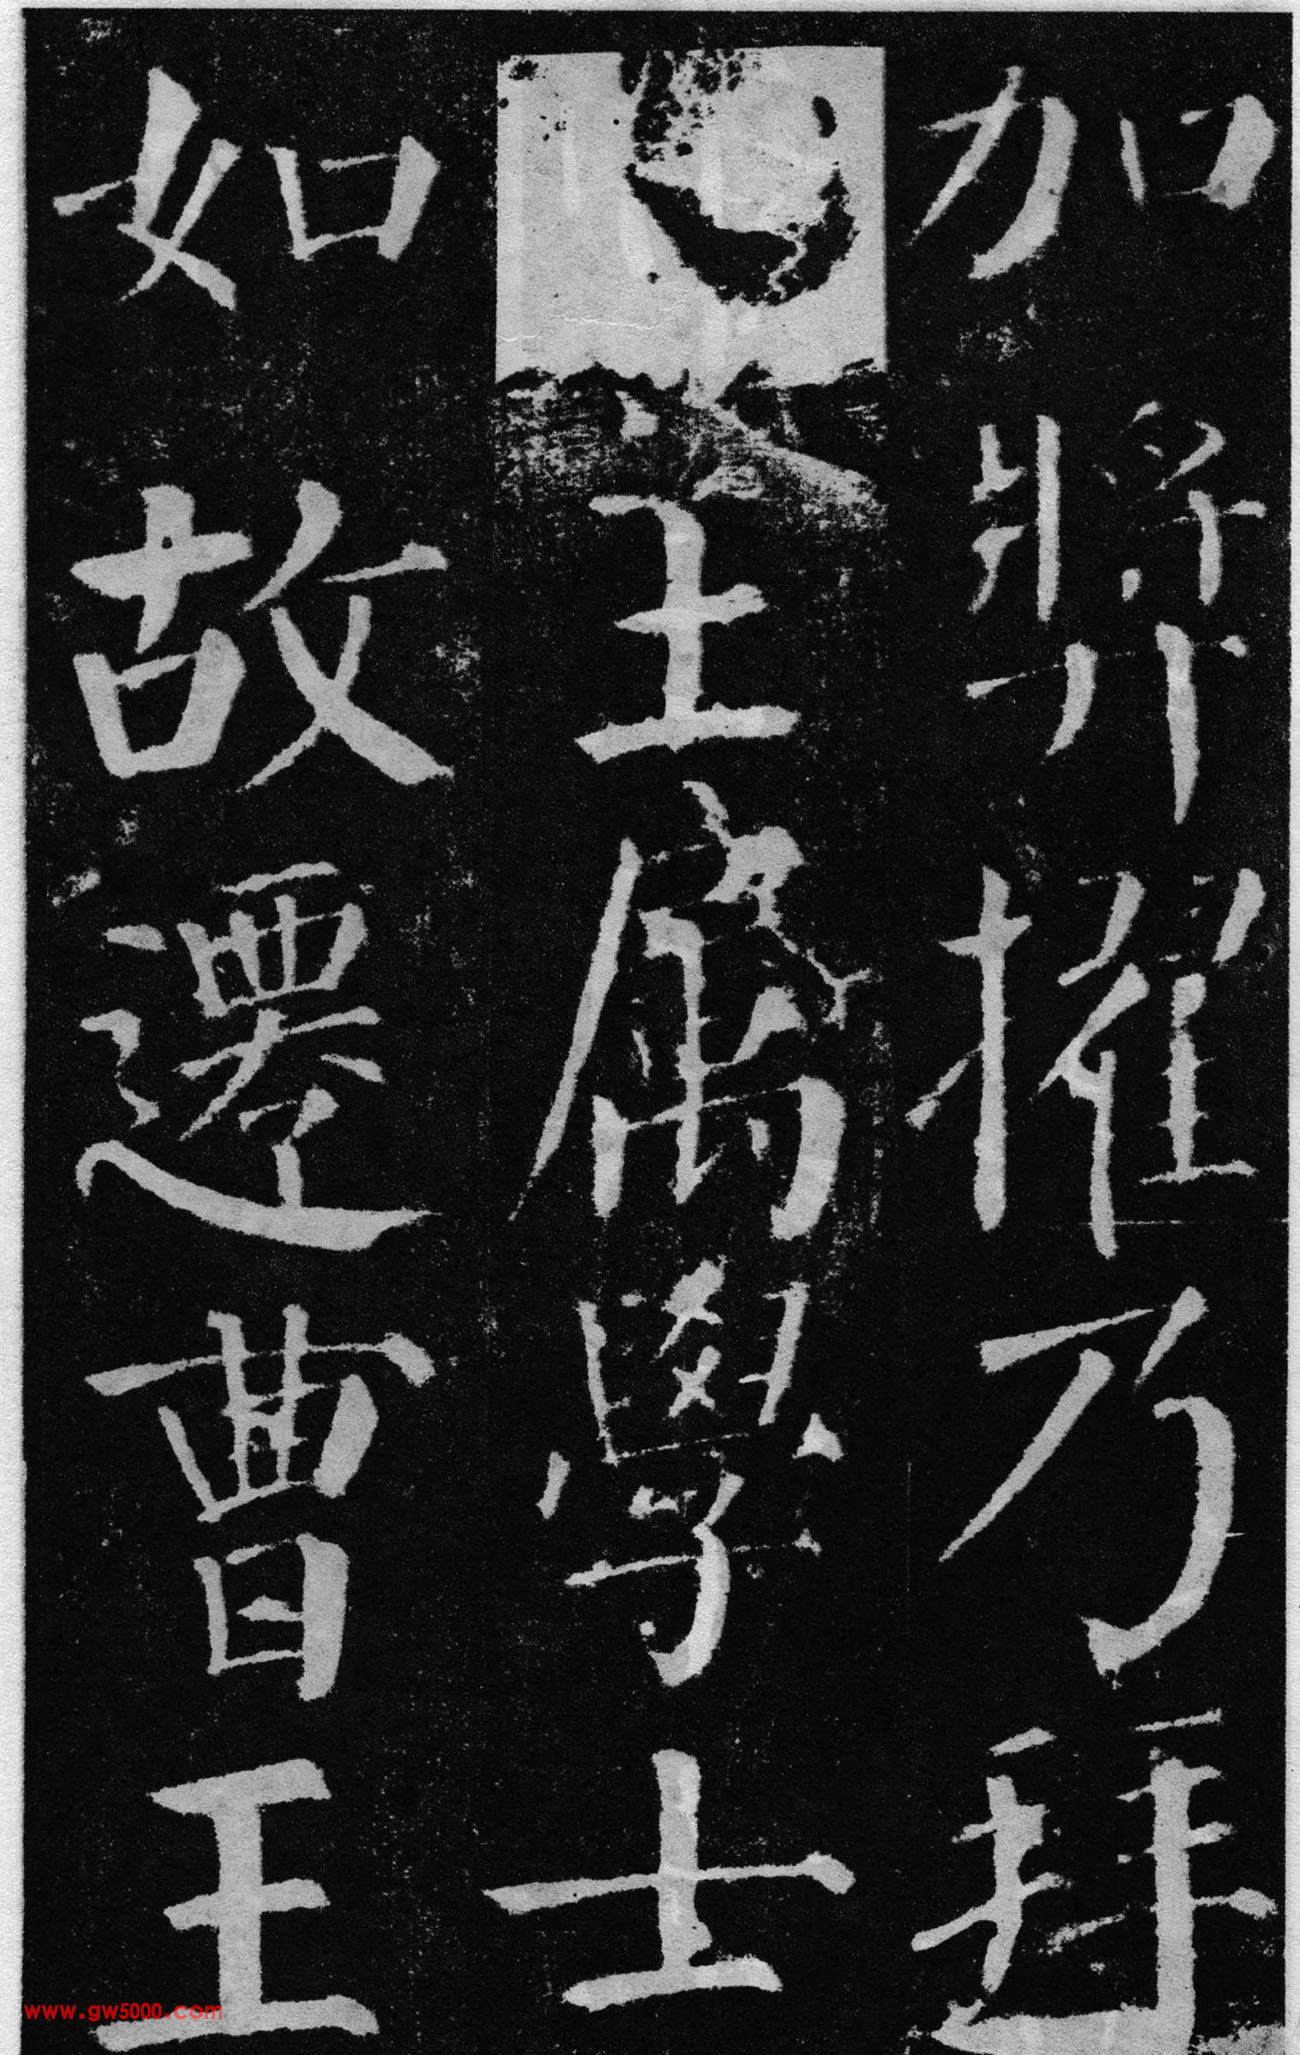 加奬擢乃拜
王屬學士
如故遷曹王
www.gw5000.com